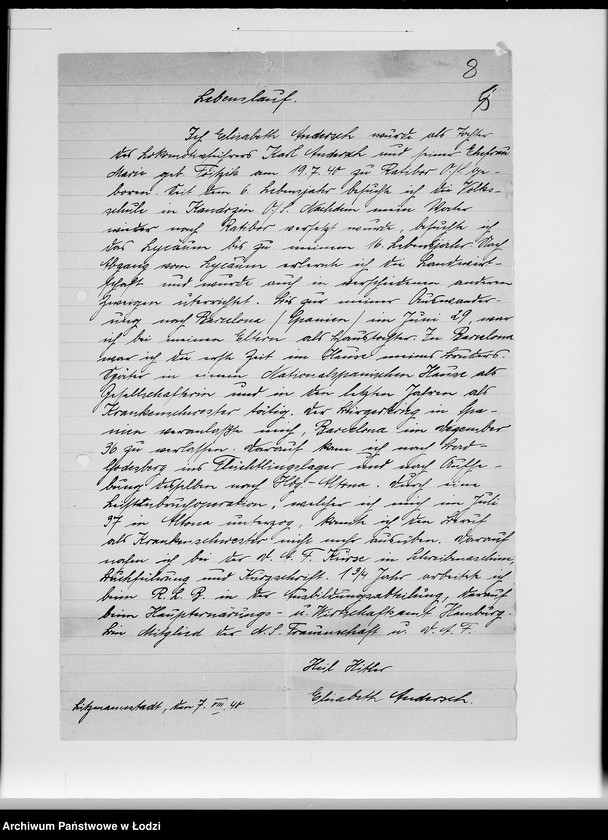 8
Lebenslauf.
Ich Elisabeth Andersch wurde als Tochter
des Lokomotivführers Karl Andersch und seiner Ehefrau
Marie geb. am 19.7.40 zu Ratibor O/S ge-
boren. Seit dem 6. Lebensjahr besuchte ich die Volks-
schule in Kandrzin O/S. Nachdem mein Vater
wieder nach Ratibor versetzt wurde, besuchte ich
das Lyzäum bis zu meinem 16. Lebensjahr. Nach
Abgang vom Lyzäum erlernte ich die Landwirt-
schaft und wurde auch in verschiedenen anderen
Zweigen überrichtet. Bis zur meiner Auswander-
ung nach Barcelona /Spanien/ im Juni 29 war
ich bei meinen Eltern als Haustochter. In Barcelona
war ich die erste Zeit im Hause meines Bruders.
Später in einem Nationalspanischen Hause als
Gesellschafterin und in den letzten Jahren als
Krankenschwester tätig. Der Bürgerkrieg in Spa-
nien veranlaßte mich, Barcelona im Dezember
36 zu verlassen. Darauf kam ich nach Bad-
Godesberg ins Flüchtlingslager und nach Aufhe-
bung desselben nach Hbg-Altona. Durch eine
, welcher ich mich im Juli
37 in Altona unterzog, konnte ich den Beruf
als Krankenschwester nicht mehr ausüben. Darauf
nahm ich bei der D.A.F. Kurse in Schreibmaschine,
Buchführung und Kurzschrift. 1 3/4 Jahr arbeitete ich
beim R.L.B. in der Ausbildungsabteilung, darauf
beim Haupternärungs- u. Wirtschaftsamt Hamburg.
Bin Mitglied der N.S. Frauenschaft u. D.A.F.
Heil Hitler
Elisabeth Andersch.
Litzmannstadt, den 7. VIII. 40
Archiwum Państwowe w Łodzi